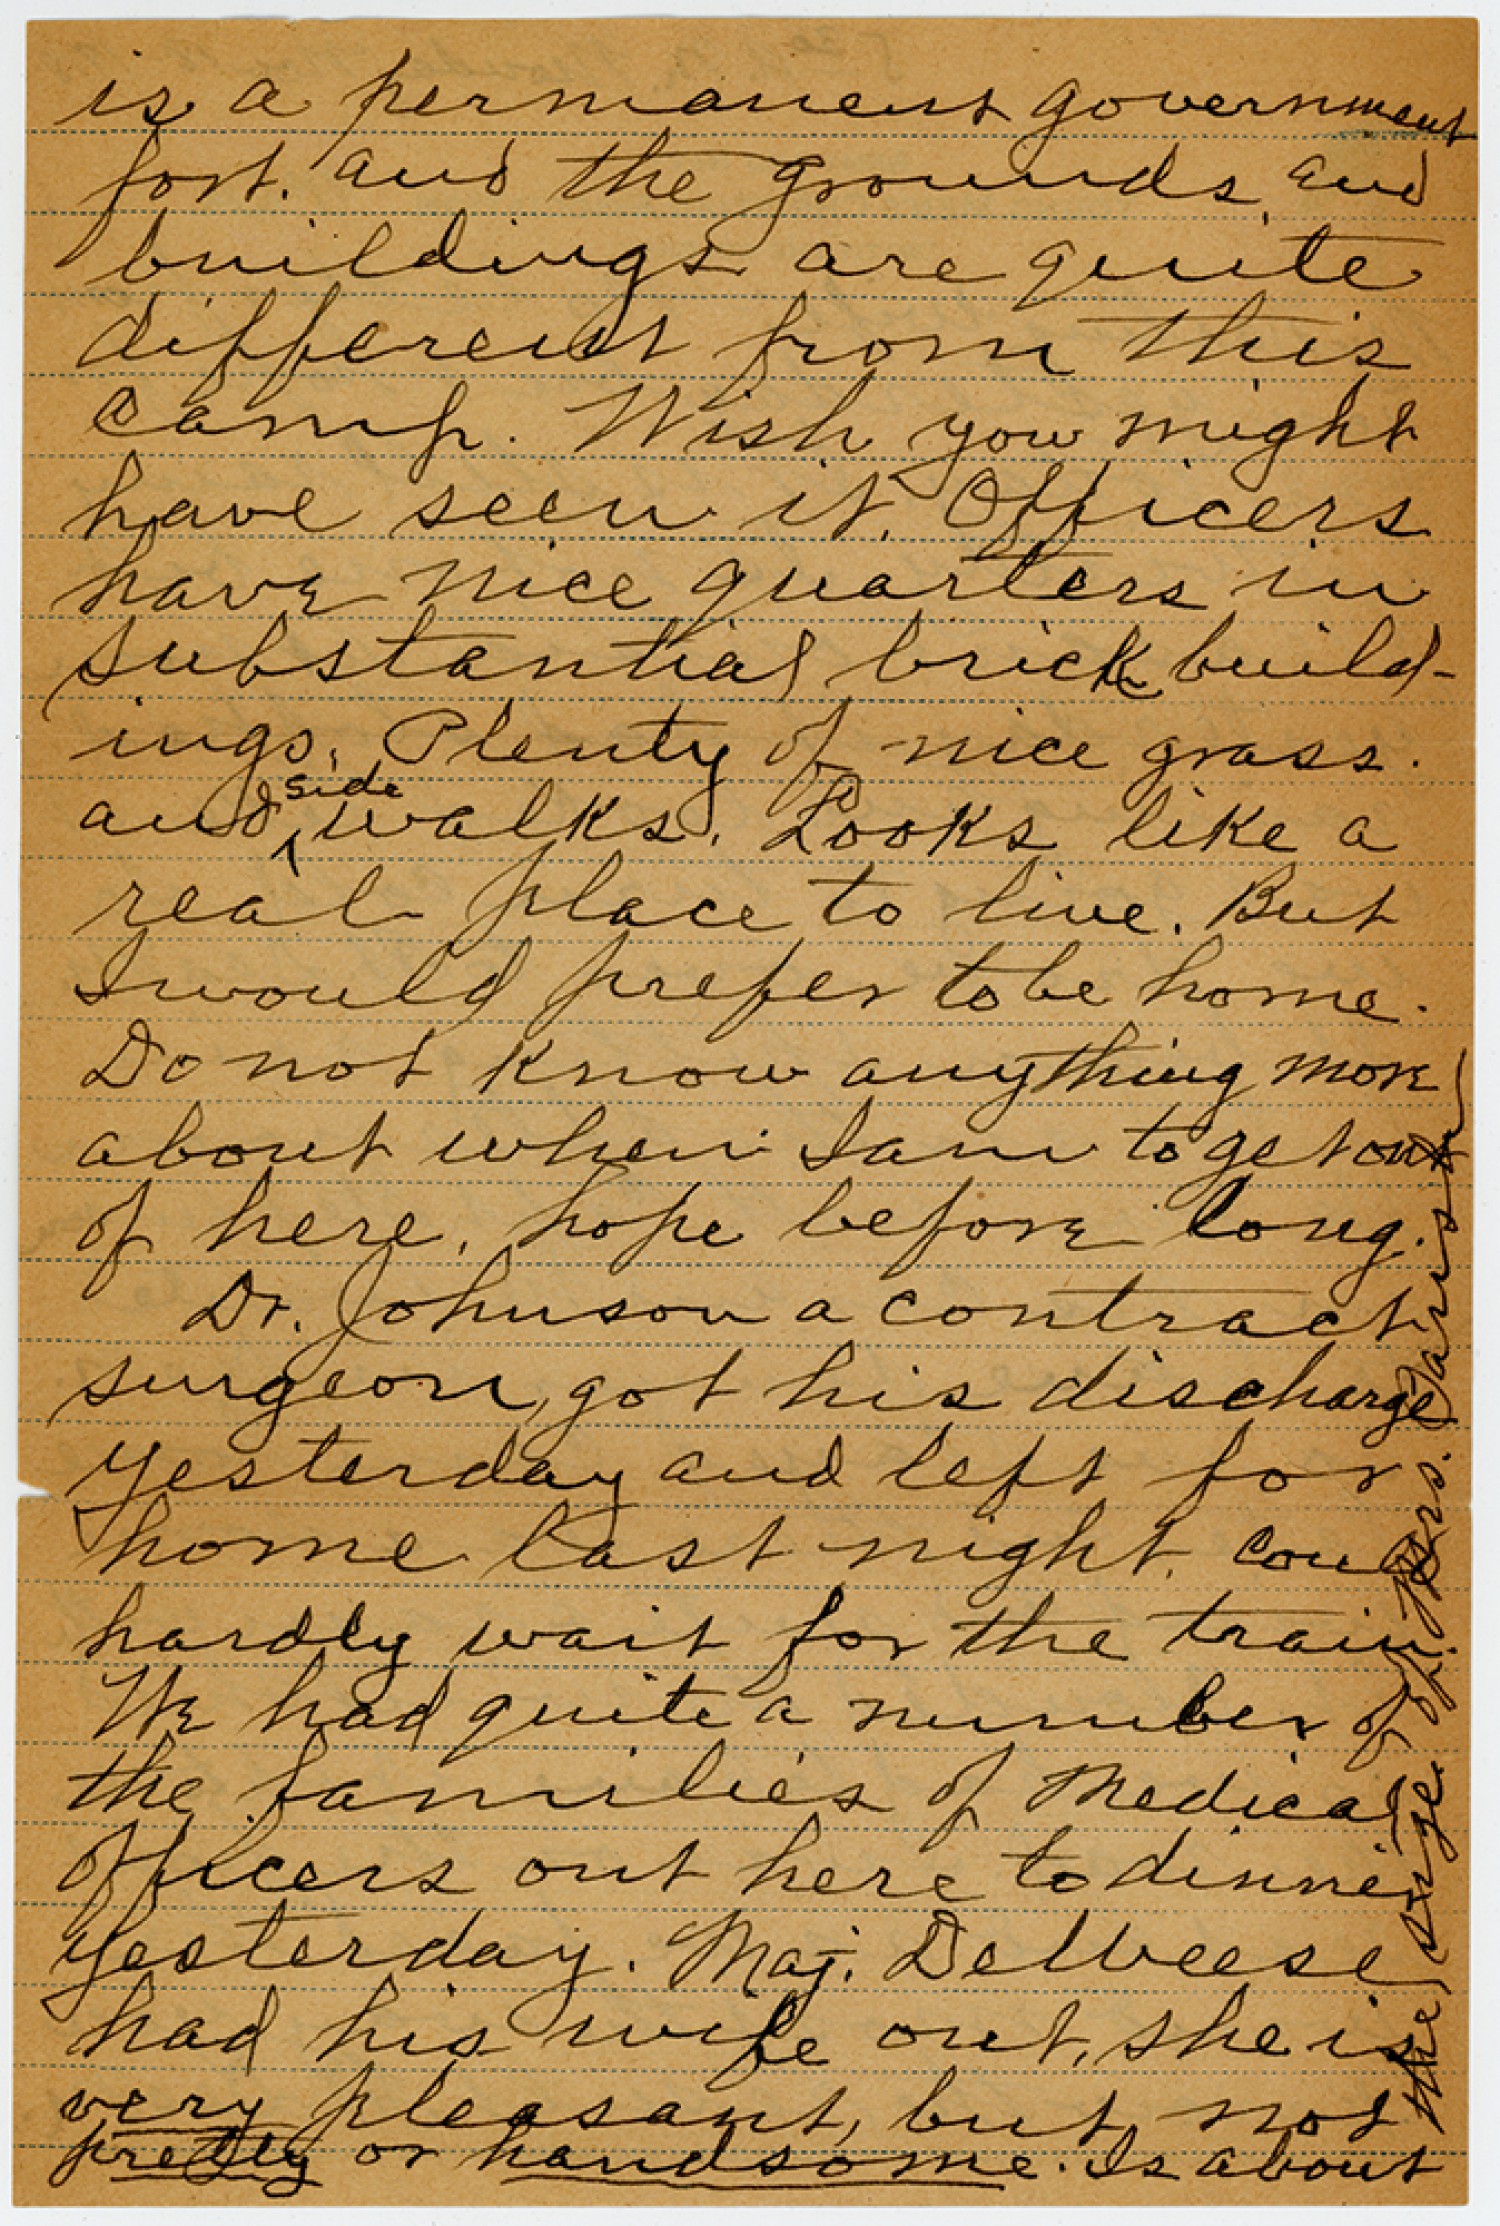 is a permanent government
fort. and the grounds and
buildings are quite
different from this
camp. Wish you might
have seen it. Officers
have nice quarters in
substantial brick build-
ings. Plenty of nice grass.
and side walks. Looks like a
real place to live. But
I would prefer to be home.
Do not know anything more
about when I am to get out
of here. hope before long.
Dr. Johnson a contract
surgeon, got his discharge
yesterday and left for
home last night. Could
hardly wait for the train.
We had quite a number of
the families of Medical
officers out here to dinner
yesterday. Maj. DeWeese
had his wife out, she is
very pleasant, but not
pretty or handsome. Is about
the size of Mrs.